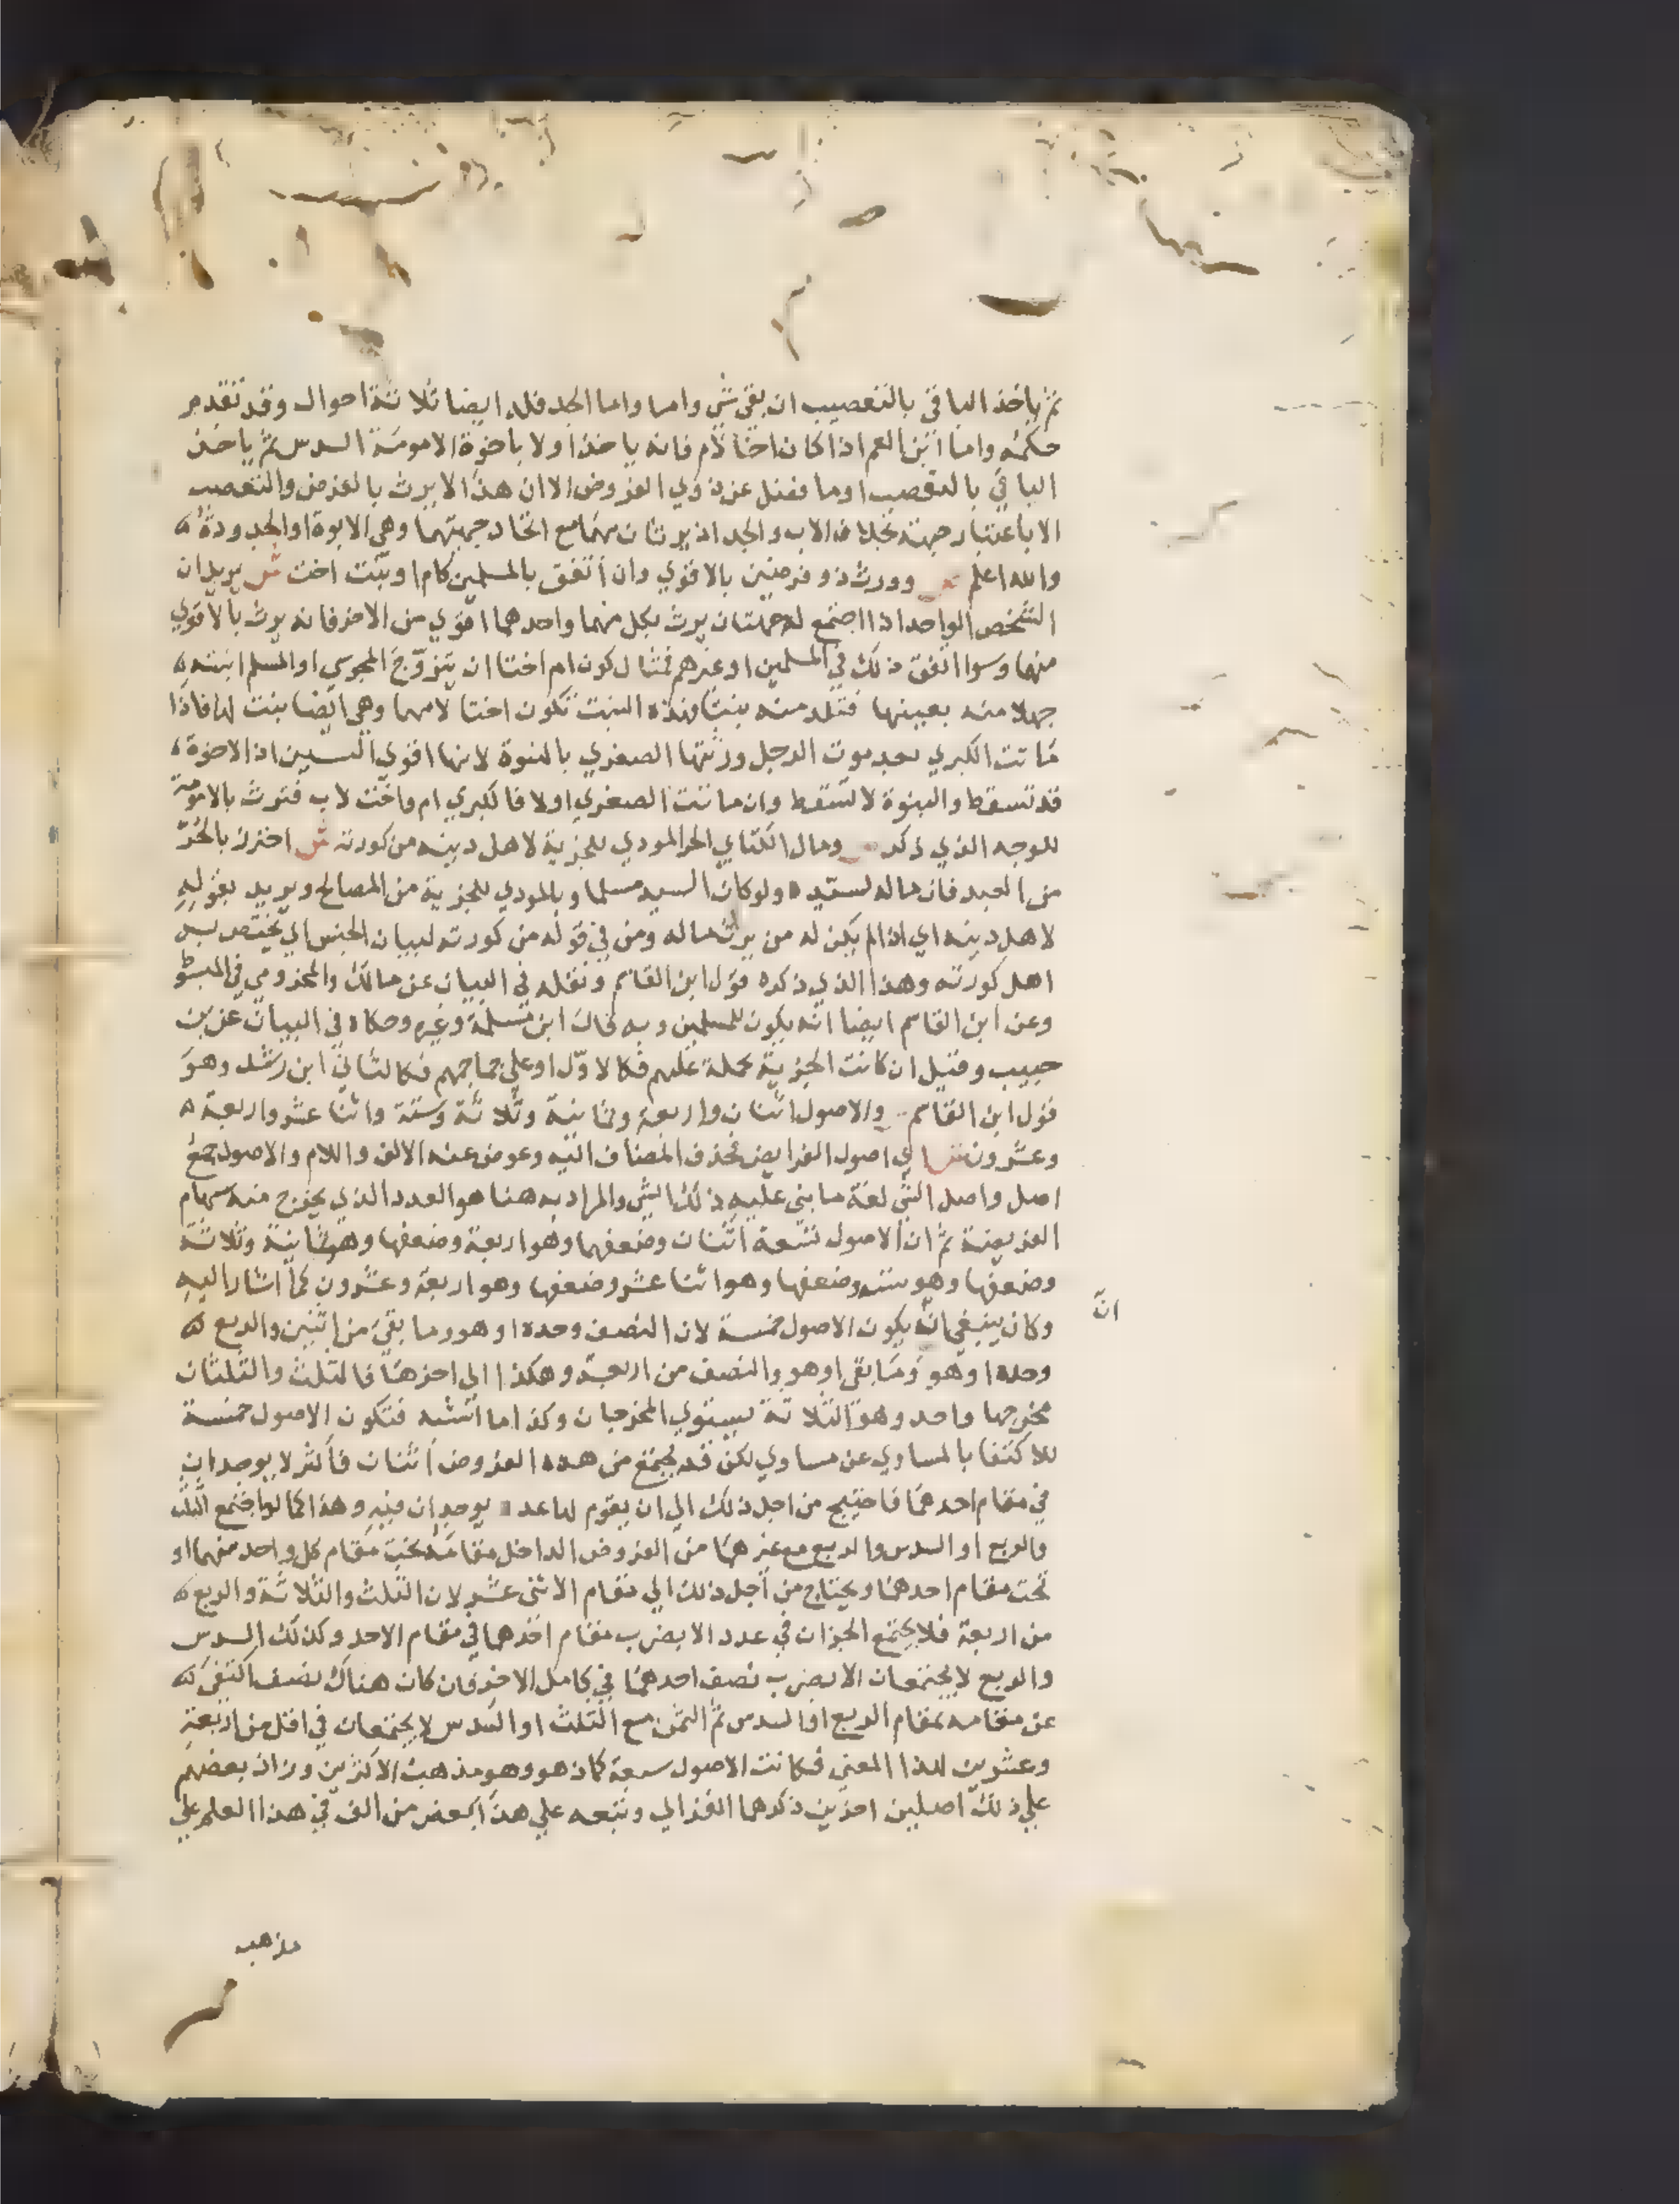 ثم ياخذ الباقي بالتعصيب ان بقي شي واما واما الجد فله ايضا ثلاثة احوال وقد تقدم
حكمه واما ابن العم اذا كان اخا لام فانه ياخذ اولا باخوة الامومة السدس ثم ياخذ
الباقي بالتعصيب او ما فضل عن ذوي الفروض الا ان هذا لا يرث بالفرض والتعصيب
الا باعتبار جهته بخلاف الاب والجد اذ يرثان بهما مع اتحاد جهتهما وهي الابوة او الجدودة
والله اعلم وورث ذو فرضين بالاقوي وان اتفق بالمسلمين كام او بنت اخت ش يريد ان
الشخص الواحد اذا اجتمع له جهتان يرث بكل منهما واحدهما اقوي من الاخر فانه يرث بالاقوي
منهما وسوا اتفق ذلك في المسلمين او غيرهم فمثال كون ام اختا ان يتزوج المجوسي او المسلم ابنته
جهلا منه بعينها فتلد منه بنتا فهذه البنت تكون اختا لامها وهي ايضا بنت لها فاذا
ماتت الكبري بعد موت الرجل ورثتها الصغري بالبنوة لانها اقوي السببين اذ الاخوة
قد تسقط والبنوة لا تسقط وان ماتت الصغري اولا فالكبري ام واخت لاب فترث بالامومة
للوجه الذي ذكر ومال الكتابي الحر المودي للجزية لاهل دينه من كورته ش احترز بالحر
من العبد فان ماله لسيده ولو كان السيد مسلما وبالمودي للجزية من المصالح ويريد بقوله
لاهل دينه اي اذا لم يكن له من يرث ماله ومن في قوله من كورته لبيان الجنس اي يختص به
اهل كورته وهذا الذي ذكره قول ابن القاسم ونقله في البيان عن مالك والمخزومي في المبسوط
وعن ابن القاسم ايضا انه يكون للمسلمين وبه قال ابن مسلمة وغيره وحكاه في البيان عن بن
حبيب وقيل ان كانت الجزية مجملة عليهم فكالاول او علي جماجمهم فكالثاني ابن رشد وهو
قول ابن القاسم والاصول اثنان واربعة وثمانية وثلاثة وستة واثنا عشر واربعة
وعشرون ش اي اصول الفرايض فحذف المضاف اليه وعوض عنه الالف واللام والاصول جمع
اصل واصل الشي لغة ما بني عليه ذلك الشي والمراد به هنا هو العدد الذي يخرج منه سهام
الفريضة ثم ان الاصول تسعة اثنان وضعفهما وهو اربعة وضعفها وهو ثمانية وثلاثة
وضعفها وهو ستة وضعفها وهو اثنا عشر وضعفها وهو اربعة وعشرون كما اشار اليه
وكان ينبغي ان يكون الاصول خمسة لان النصف وحده او هو وما بقي من اثنين والربع
انّ
وحده او هو وما بقي او هو والنصف من اربعة وهكذا الي اخرها فالثلث والثلثان
مخرجها واحد وهو الثلاثة يستوي المخرجان وكذا ما اشبه فتكون الاصول خمسة
للاكتفا بالمساوي عن مساوي لكن قد يجتمع من هذه الفروض اثنان فاكثر لا يوجدان
في مقام احدهما فاحتيج من اجل ذلك الي ان يقوم لها عدد يوجدان فيه وهذا كما لو اجتمع الثلث
والربع او السدس والربع مع غيرهما من الفروض الداخل مقامه تحت مقام كل واحد منهما او
تحت مقام احدهما ويحتاج من اجل ذلك الي مقام الاثني عشر لان الثلث والثلاثة والربع
من اربعة فلا يجتمع الجزان في عدد الا بضرب مقام احدهما في مقام الاحد وكذلك السدس
والربع لا يجتمعان الا بضرب نصف احدهما في كامل الاخر فان كان هناك نصف اكتفي
عن مقامه بمقام الربع او السدس ثم الثمن مع الثلث او السدس لا يجتمعان في اقل من اربعة
وعشرين لهذا المعني فكانت الاصول سبعة كما ذهو وهو مذهب الاكثرين وزاد بعضهم
علي ذلك اصلين اخرين ذكرهما الغزالي وتبعه علي هذا بعض من الف في هذا العلم علي
مذهب